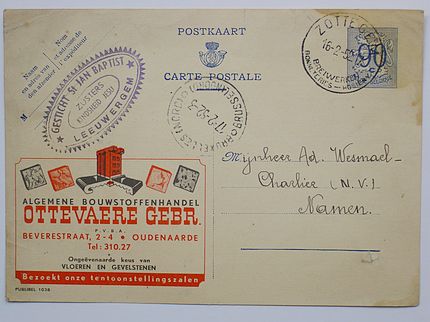 POSTKAART
CARTE POSTALE
Naam
en adres van
den afzender
Nom
et adresse de
l'expéditeur
M
GESTICHT St JAN BAPTIST
ZUSTERS
LEEUWERGEM
BRUXELLES (NOORD) BRUSSEL
17-2-52
ZOTTEGEM
16-2-52
BREIWERKEN
BONNETERIES
90
ALGEMENE BOUWSTOFFENHANDEL
OTTEVAERE GEBR.
P.V.B.A.
BEVERESTRAAT, 2-4 • OUDENAARDE
Tel: 310.27
Ongeëvenaarde keus van
VLOEREN EN GEVELSTENEN
Bezoekt onze tentoonstellingszalen
PUBLIBEL 1036
Mijnheer Ad. Wesmael-
Charlier (N.V.)
Namen.